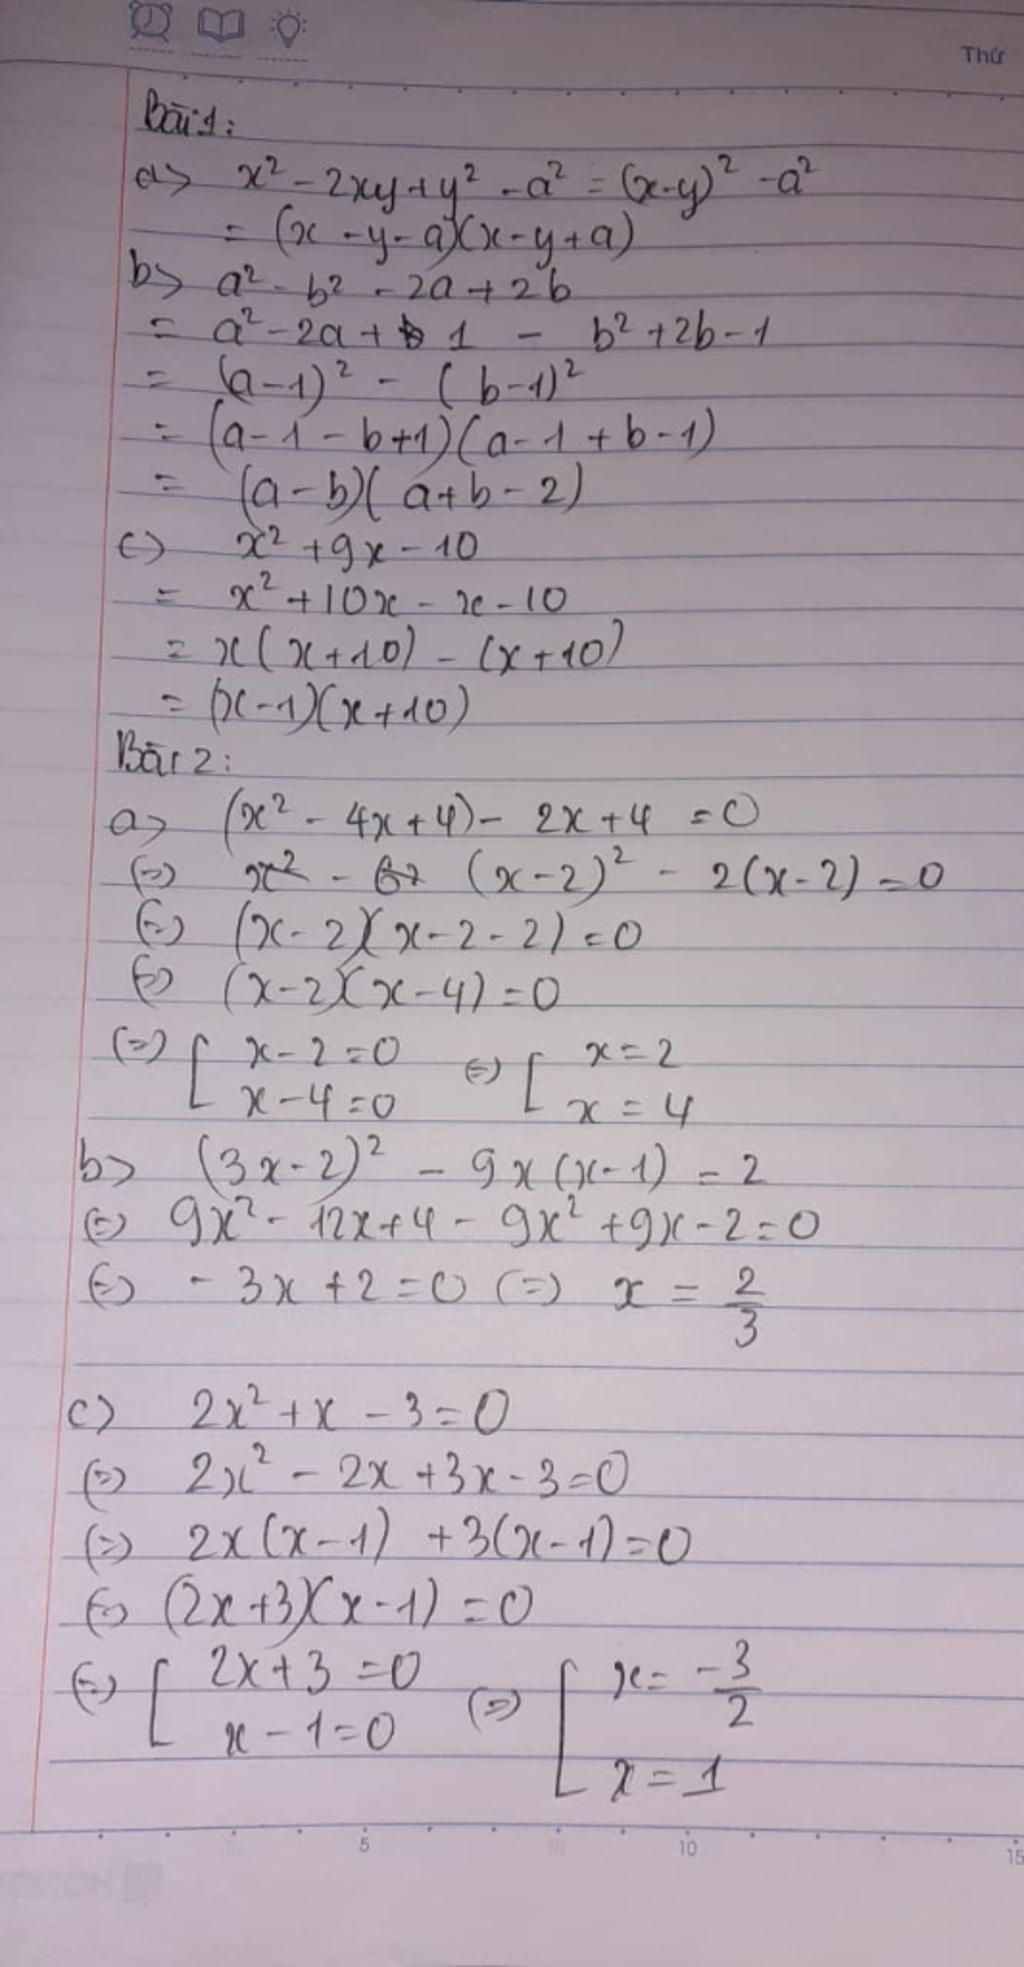 Thứ
Bài 1:
a> x² - 2xy + y² - a² = (x-y)² - a²
= (x - y - a)(x - y + a)
b> a² - b² - 2a + 2b
= a² - 2a + 1 - b² + 2b - 1
= (a-1)² - (b-1)²
= (a - 1 - b + 1)(a - 1 + b - 1)
= (a - b)(a + b - 2)
c> x² + 9x - 10
= x² + 10x - x - 10
= x(x + 10) - (x + 10)
= (x - 1)(x + 10)
Bài 2:
a> (x² - 4x + 4) - 2x + 4 = 0
(=) (x-2)² - 2(x-2) = 0
(=) (x-2)(x-2-2) = 0
(=) (x-2)(x-4) = 0
(=) [ x-2=0 (=) [ x=2
x-4=0 x=4
b> (3x-2)² - 9x(x-1) = 2
(=) 9x² - 12x + 4 - 9x² + 9x - 2 = 0
(=) - 3x + 2 = 0 (=) x = 2/3
c> 2x² + x - 3 = 0
(=) 2x² - 2x + 3x - 3 = 0
(=) 2x(x-1) + 3(x-1) = 0
(=) (2x+3)(x-1) = 0
(=) [ 2x+3=0 (=) [ x= -3/2
x-1=0 x=1
5 10 15